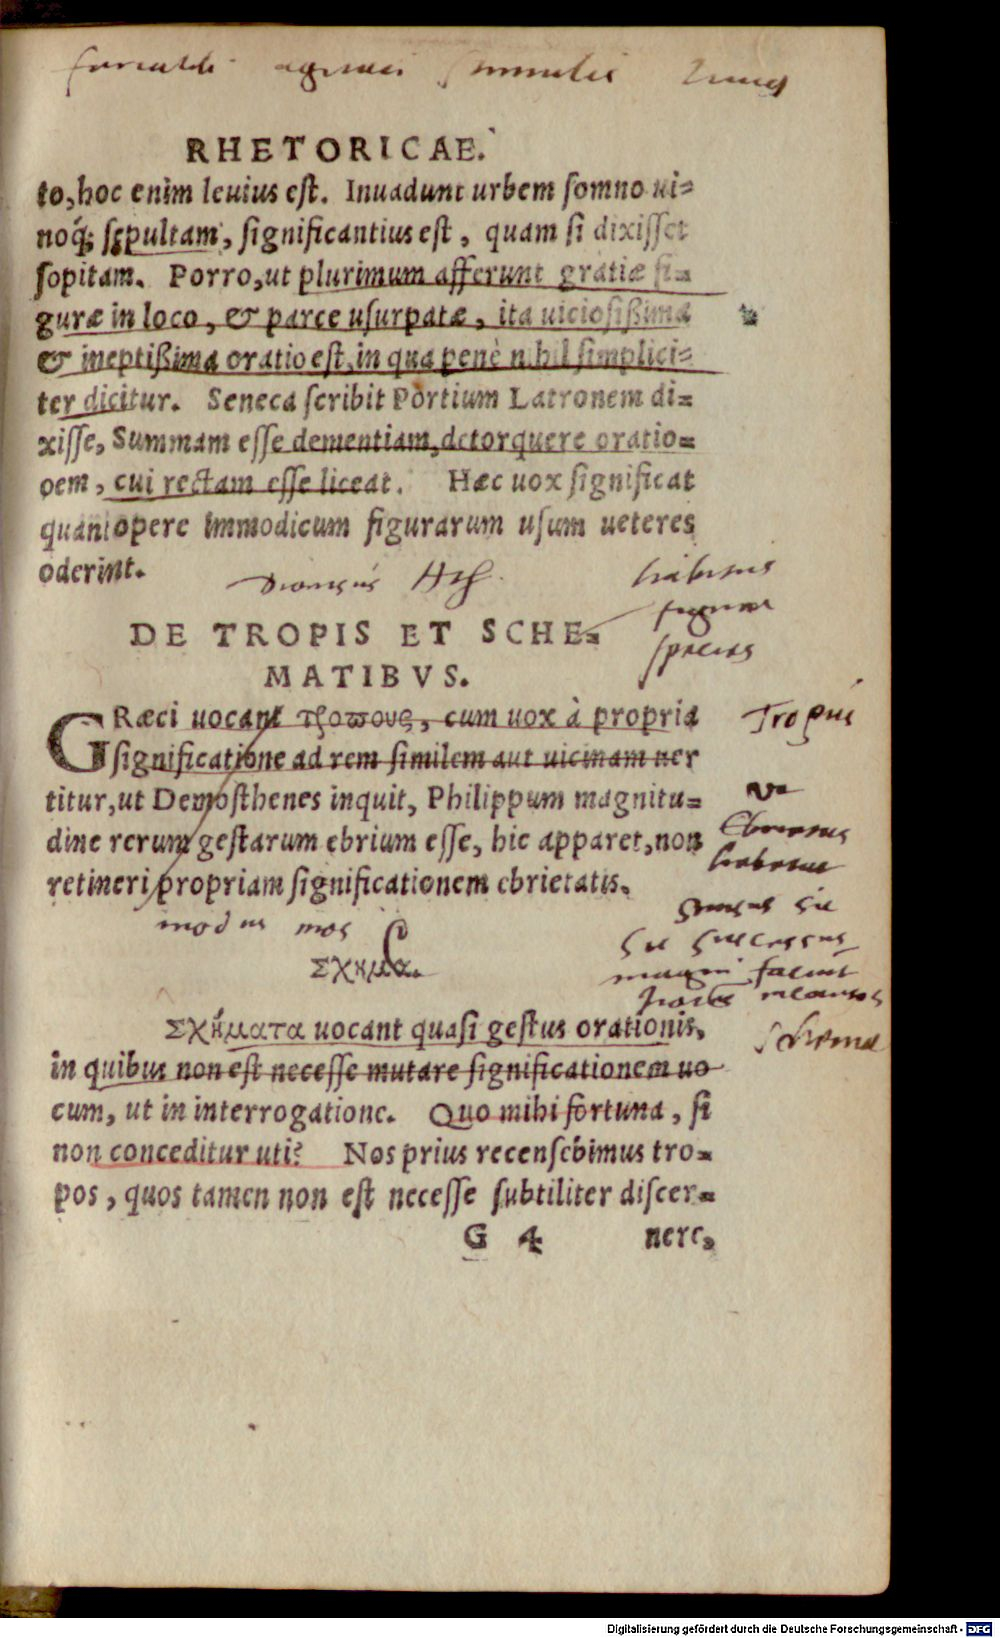 RHETORICAE.
to, hoc enim leuius est. Inuadunt urbem somno ui=
noq́; sepultam, significantius est, quam si dixisset
sopitam. Porro, ut plurimum afferunt gratiæ fi=
guræ in loco, & parce usurpatæ, ita uiciosißima
& ineptißima oratio est, in qua penè nihil simplici=
ter dicitur. Seneca scribit Portium Latronem di=
xisse, Summam esse dementiam, detorquere oratio=
oem, cui rectam esse liceat. Hæc uox significat
quantopere immodicum figurarum usum ueteres
oderint.
DE TROPIS ET SCHE=
MATIBVS.
GRæci uocant τρόπους, cum uox à propria
significatione ad rem similem aut uicinam uer
titur, ut Demosthenes inquit, Philippum magnitu=
dine rerum gestarum ebrium esse, hic apparet, non
retineri propriam significationem ebrietatis.
modus mos
Tropus
σχημα.
Σχήματα uocant quasi gestus orationis,
Schema
in quibus non est necesse mutare significationem uo
cum, ut in interrogatione. Quo mihi fortuna, si
non conceditur uti? Nos prius recensebimus tro=
pos, quos tamen non est necesse subtiliter discer=
G 4 nere,
Digitalisierung gefördert durch die Deutsche Forschungsgemeinschaft - DFG